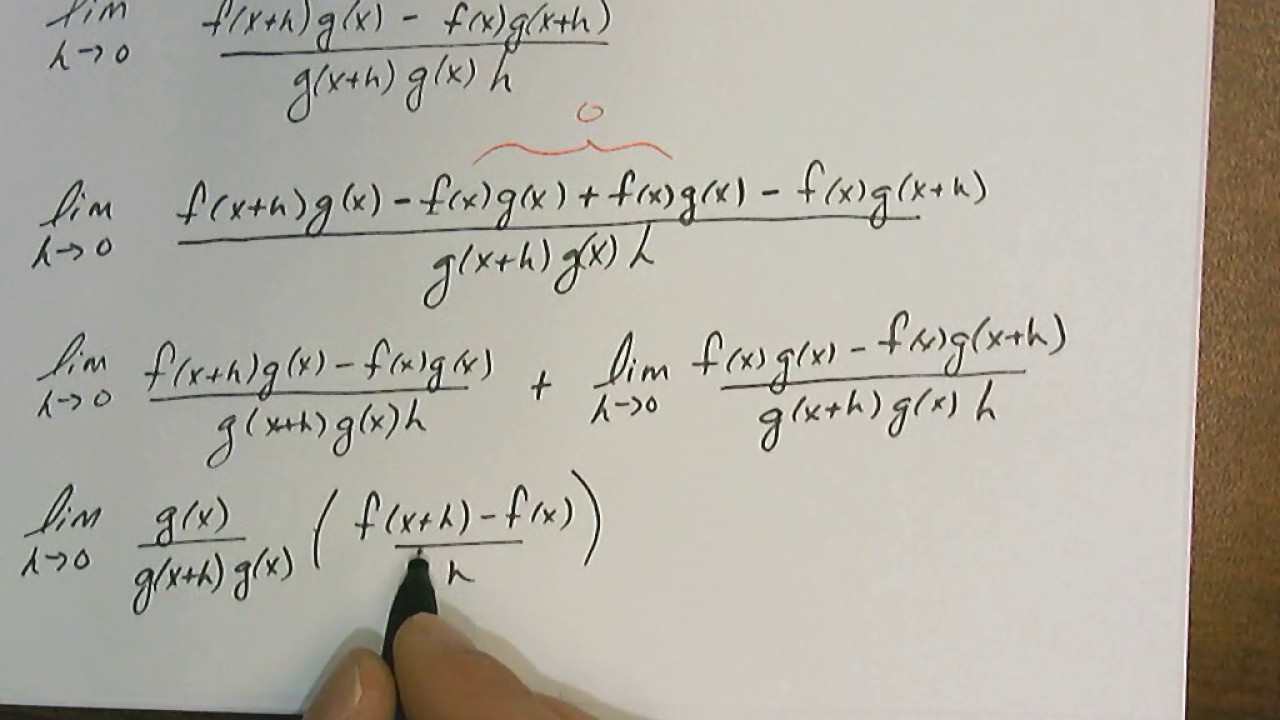 lim h→0 f(x+h)g(x) - f(x)g(x+h) / g(x+h) g(x) h
0
lim h→0 f(x+h)g(x) - f(x)g(x) + f(x)g(x) - f(x)g(x+h) / g(x+h) g(x) h
lim h→0 f(x+h)g(x) - f(x)g(x) / g(x+h) g(x) h + lim h→0 f(x)g(x) - f(x)g(x+h) / g(x+h) g(x) h
lim h→0 g(x) / g(x+h) g(x) ( f(x+h) - f(x) / h )